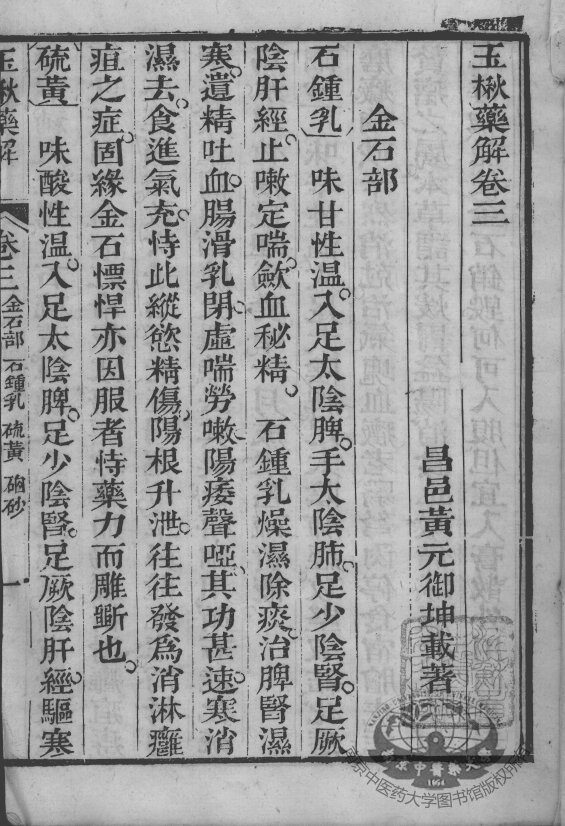 玉楸藥解卷三
昌邑黃元御坤載著
金石部
石鍾乳 味甘性溫入足太陰脾手太陰肺足少陰腎足厥
陰肝經止嗽定喘歛血秘精 石鍾乳燥濕除痰治脾腎濕
寒遺精吐血腸滑乳閉虛喘勞嗽陽痿聲啞其功甚速寒消
濕去食進氣充恃此縱慾精傷陽根升泄往往發為消淋癰
疽之症固緣金石慓悍亦因服者恃藥力而雕斲也
硫黃 味酸性溫入足太陰脾足少陰腎足厥陰肝經驅寒
玉楸藥解 卷三 金石部 石鍾乳 硫黃 硇砂 一
南京中医药大学图书馆版权所有
1954